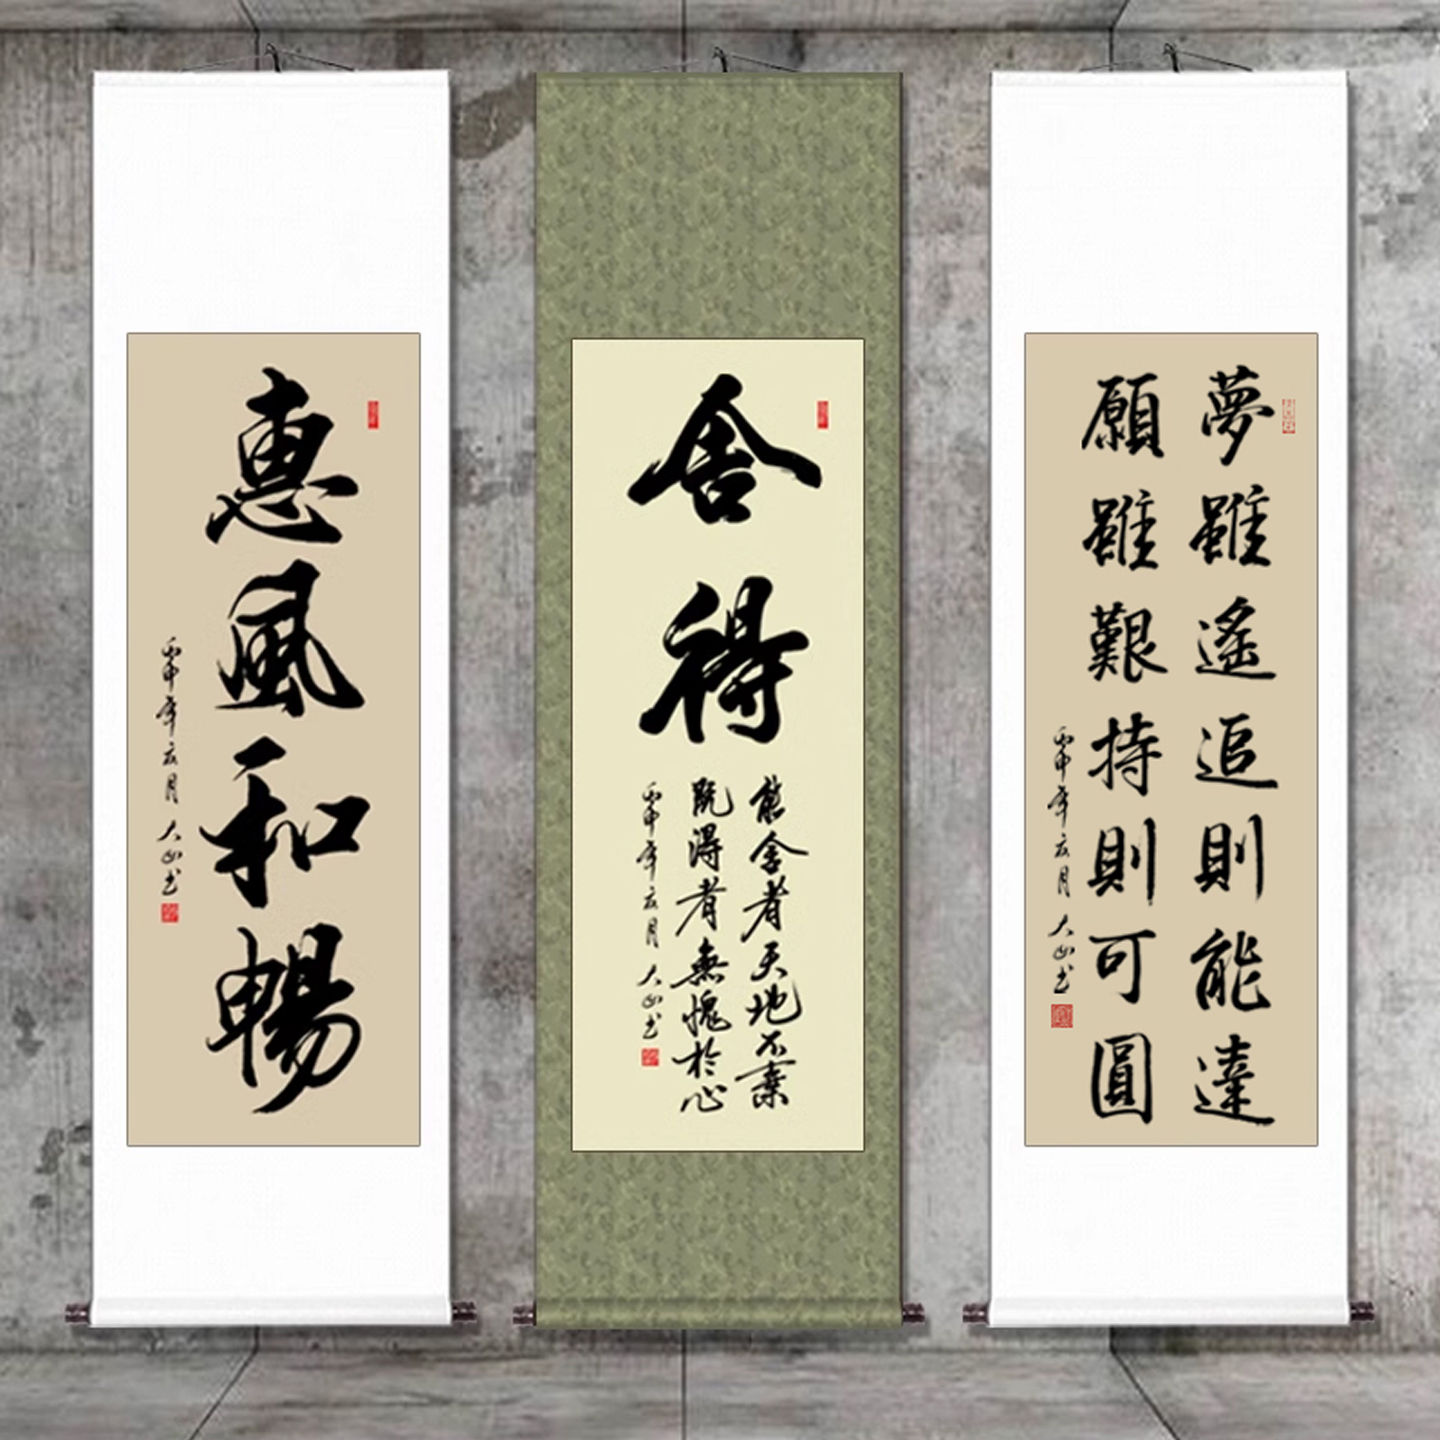 惠風和暢
丙申年亥月 大山书
舍得
能舍者天地不棄
既得者無愧於心
丙申年亥月 大山书
夢雖遙追則能達
願雖艱持則可圓
丙申年亥月 大山书